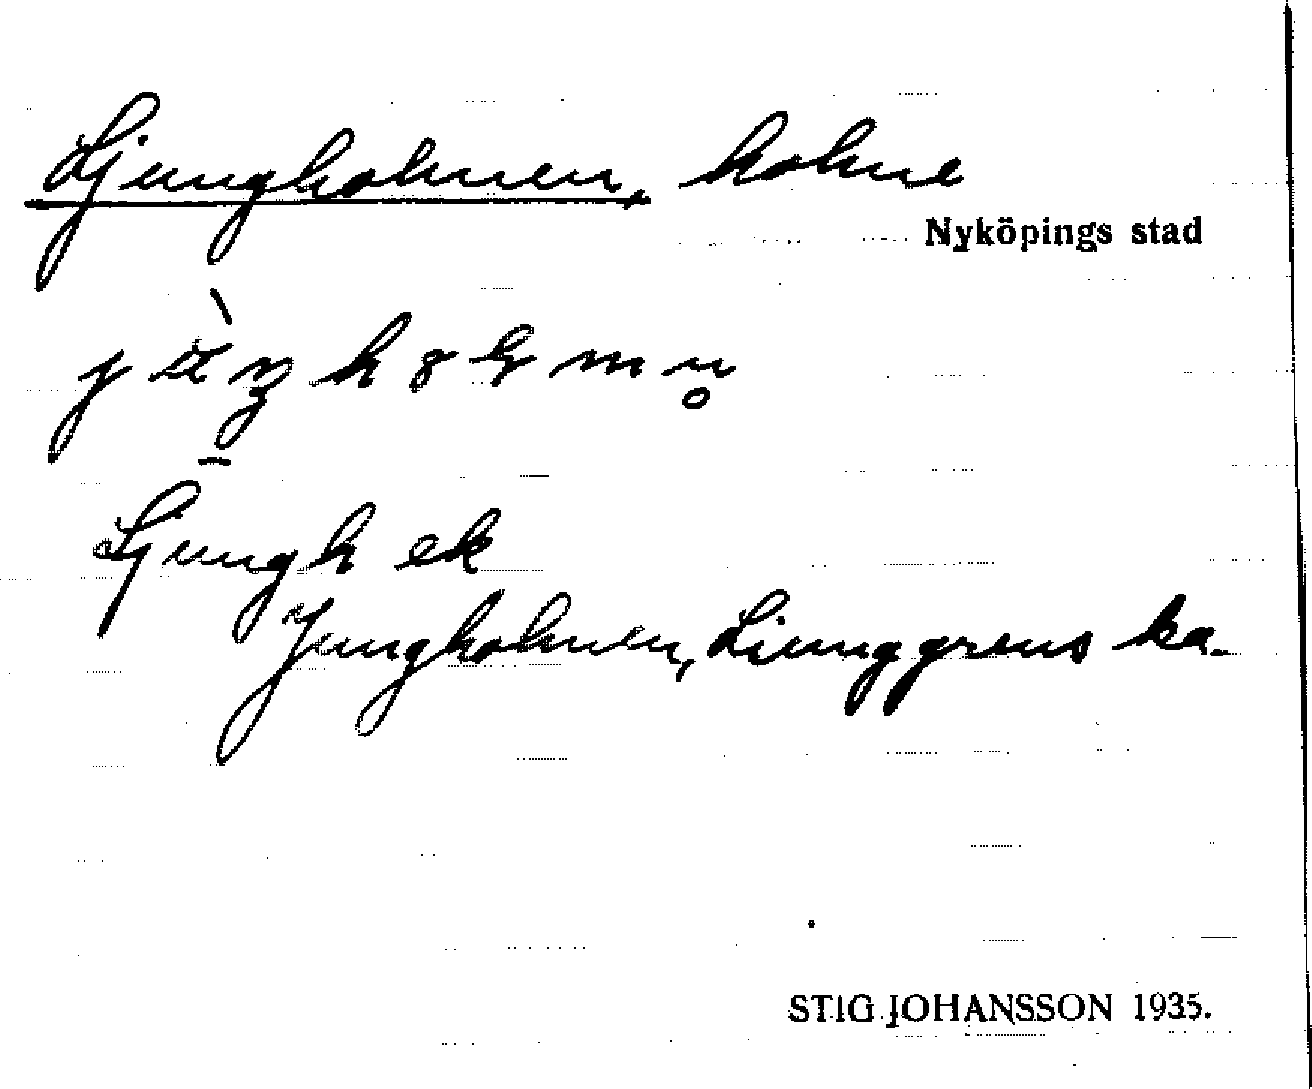 Ljungholmen, holme
Nyköpings stad
Ljungh ek
Jungholmen, Liunggrens ka.
STIG JOHANSSON 1935.